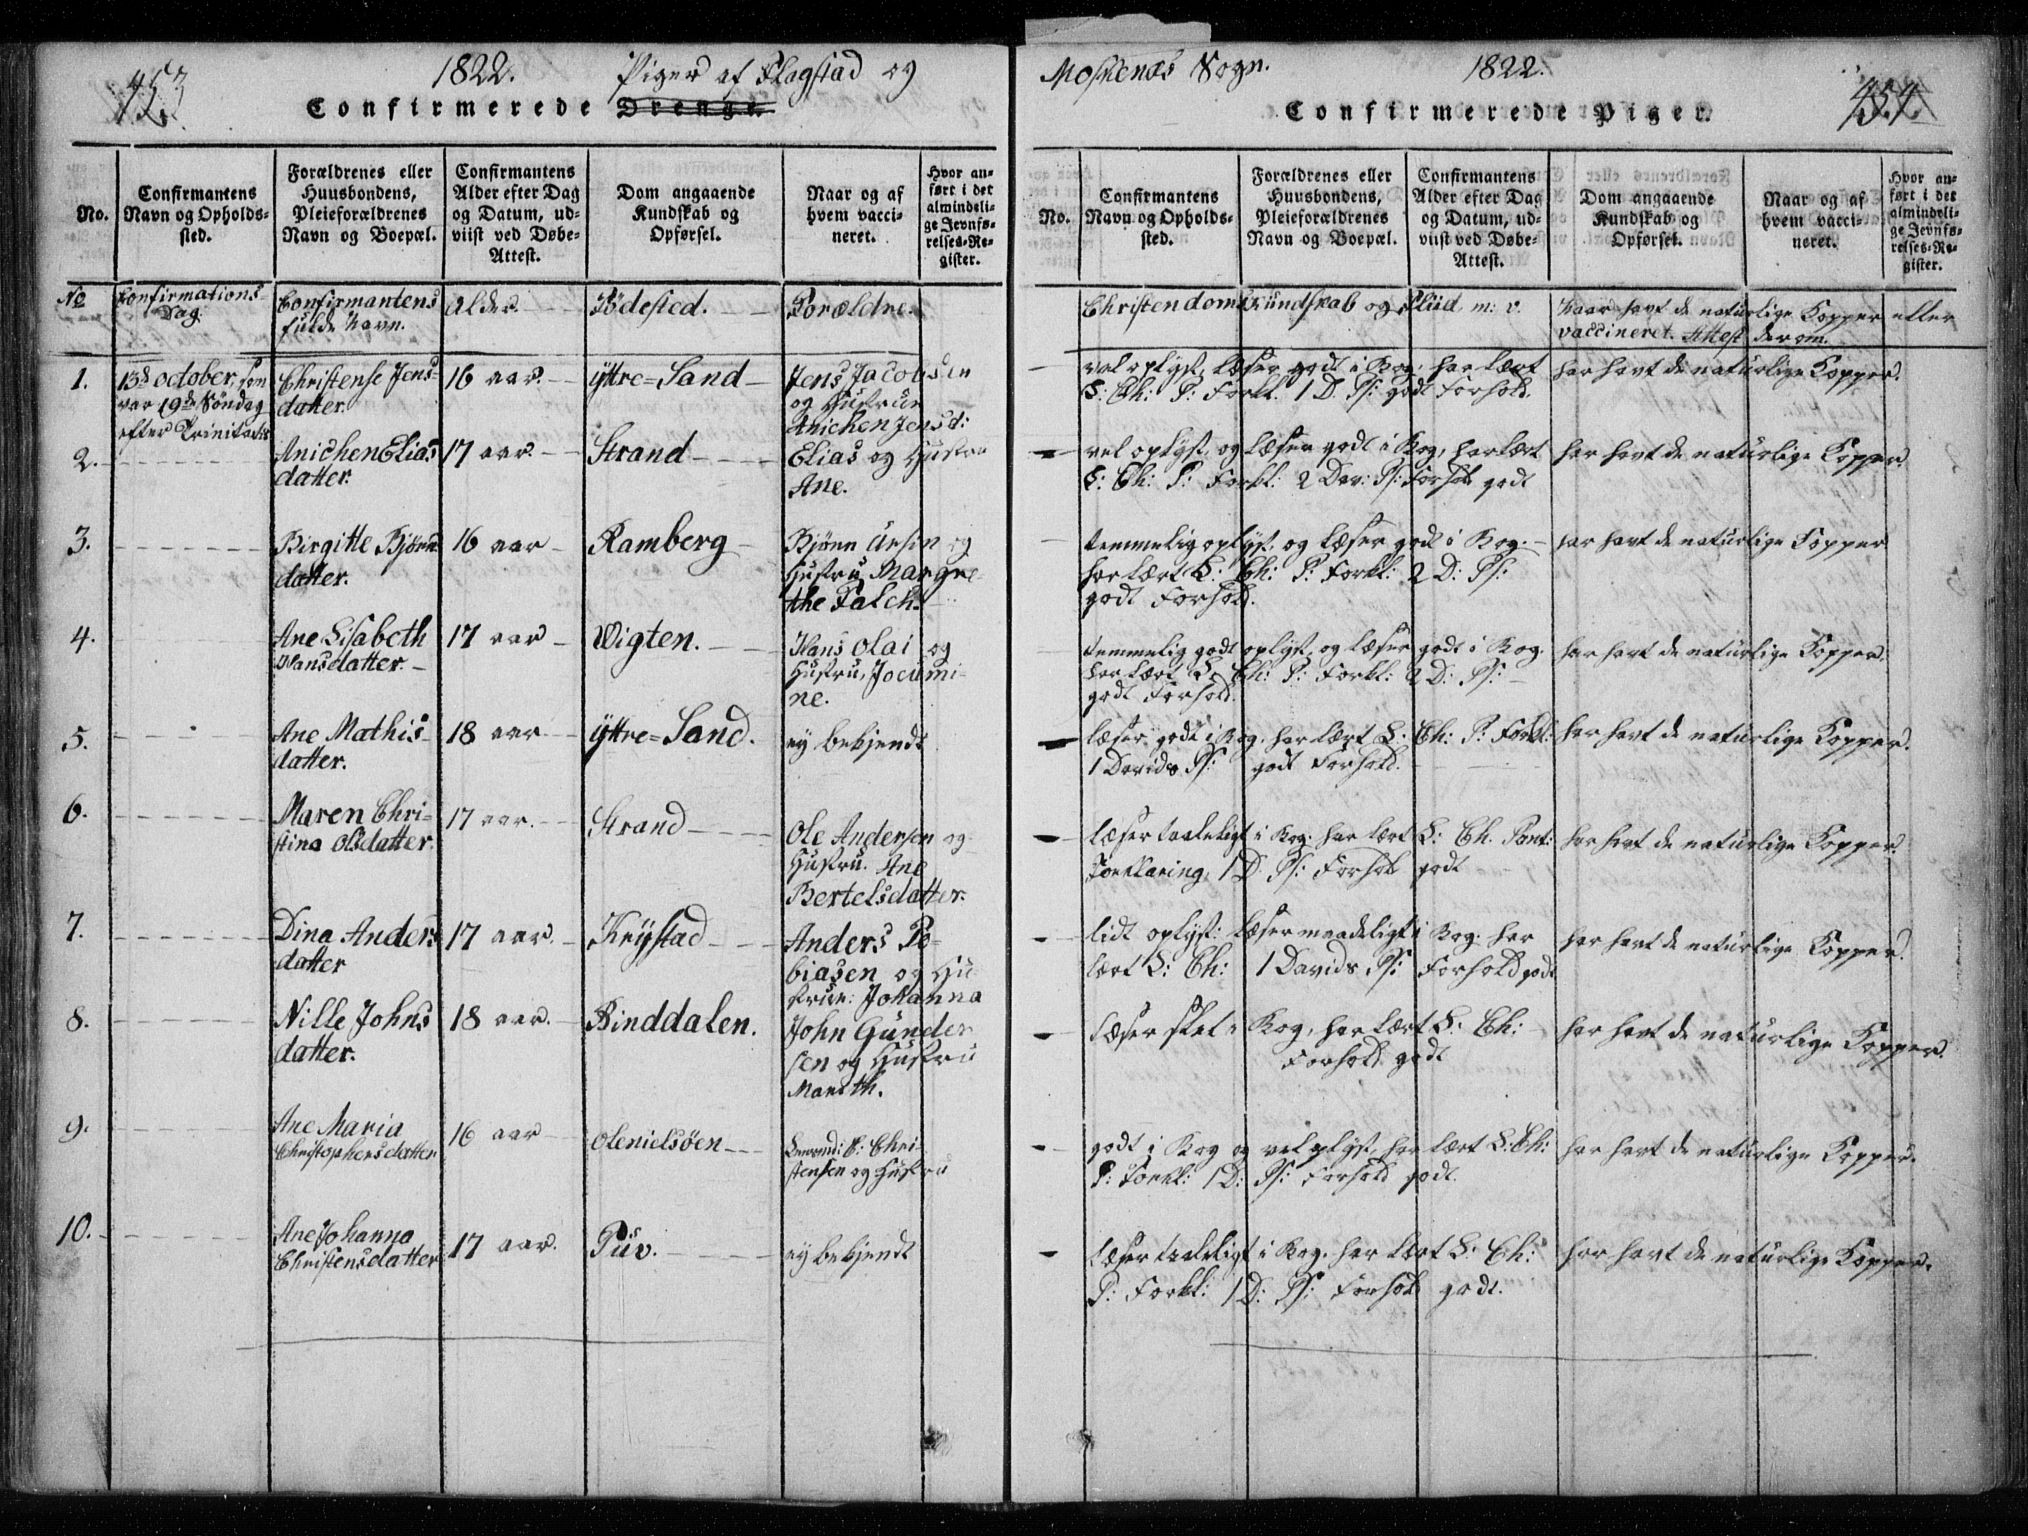 453
1822. Piger af Flagstad og
Confirmerede Drenge.
No.
Confirmantens
Navn og Opholds-
sted.
Forældrenes eller
Huusbondens,
Pleieforældrenes
Navn og Boepæl.
Confirmantens
Alder efter Dag
og Datum, ud-
viist ved Døbe-
Attest.
Dom angaaende
Kundskab og
Opførsel.
Naar og af
hvem vacci-
neret.
Hvor an-
ført i det
almindeli-
ge Jevnfø-
relses-Re-
gister.
No
Confirmations-
Dag.
Confirmantens
fulde Navn.
Alder.
Födested.
Forældre.
1.
13de October, som
var 19de Söndag
efter Trinitatis
Christense Jens-
datter.
16 aar.
Yttre=Sand
Jens Jacobsen
og Hustrue
Anichen Jensd:
2.
Anichen Elias
datter.
17 aar
Strand
Elias og Hustru
Ane.
3.
Birgitte Björns
datter.
16 aar
Ramberg
Bjönn Ursin og
Hustru Margre-
the Falch.
4.
Ane Lisabeth
Hansdatter.
17 aar
Wigten.
Hans Olai og
Hustru, Jocumi-
ne.
5.
Ane Mathis-
datter.
18 aar
Yttre=Sand.
ey bekjendt
6.
Maren Chri-
stina Olsdatter.
17 aar.
Strand
Ole Andersen og
Hustru. Ane
Bertelsdatter.
7.
Dina Anders
datter
17 aar.
Krystad
Anders To-
biasen og Hu-
strue: Johanna
8.
Nille Johns
datter.
18 aar.
Binddalen.
John Gunder
sen og Hustru
Mareth.
9.
Ane Maria
Christophersdatter
16 aar
Olenielsöen
Christensen og Hustru
10.
Ane Johanna
Christensdatter
17 aar.
ey bekjendt
Moskenæs Sogn. 1822.
454.
Confirmerede Piger.
No.
Confirmantens
Navn og Opholds-
sted.
Forældrenes eller
Huusbondens,
Pleieforældrenes
Navn og Boepæl.
Confirmantens
Alder efter Dag
og Datum, ud-
viist ved Døbe-
Attest.
Dom angaaende
Kundskab og
Opførsel.
Naar og af
hvem vacci-
neret.
Hvor an-
ført i det
almindeli-
ge Jevnfø-
relses-Re-
gister.
Christendomskundskab og Fliid, m: v.
havt de naturlige Kopper eller
vaccineret. Attest derom.
vel oplyst, læser godt i Bog: har lært
L: Ch: P: Forkl. 1 D. Ps: godt Forhold.
har havt de naturlige Kopper.
vel oplyst, og læser godt i Bog, har lært
L: Ch: P: Forkl: 2 Dav: Ps: Forhold godt
har havt de naturlige Kopper.
temmelig oplyst, og læser godt i Bog.
har lært L: Ch: P: Forkl: 2 D: Ps:
godt Forhold.
har havt de naturlige Kopper
temmelig godt oplyst, og læser godt i Bog.
har lært L. Ch: P: Forkl: 2 D: Ps:
godt Forhold.
har havt de naturlige Kopper.
læser godt i Bog. har lært L: Ch: P: Forkl:
1 Davids Ps: godt Forhold.
har havt de naturlige Kopper.
læser taaleligt i Bog: har lært L: Ch. Pont:
Forklaring, 1 D. Ps: Forhold godt
har havt de naturlige Kopper.
lidt oplyst: læser maadeligt i Bog: har
lært L: Ch: 1 Davids Ps: Forhold godt
har havt de naturlige Kopper.
læser slet i Bog, har lært L: Ch:
Forhold godt
har havt de naturlige Kopper.
godt i Bog og vel oplyst, har lært L: Ch:
P: Forkl: 1 D: Ps: Forhold godt.
har havt de naturlige Kopper.
læser taaleligt i Bog. har lært L: Ch:
P: Forkl: 1 D: Ps: Forhold godt.
har havt de naturlige Kopper.